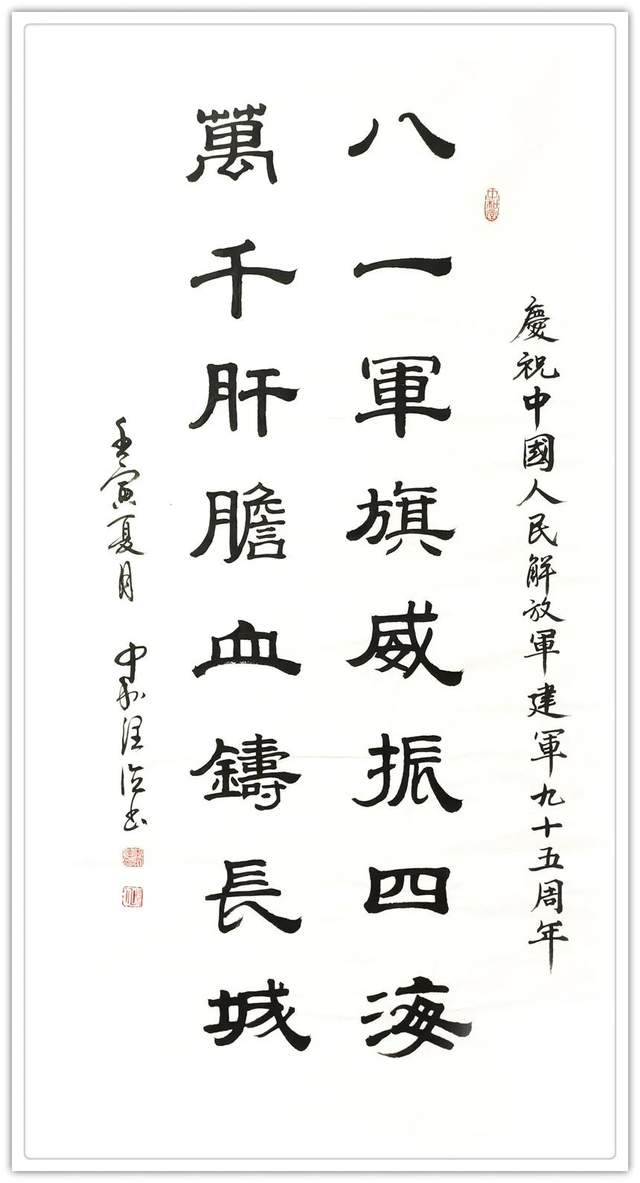 慶祝中國人民解放軍建軍九十五周年
八一軍旗威振四海
萬千肝膽血鑄長城
壬寅夏月 中和汪